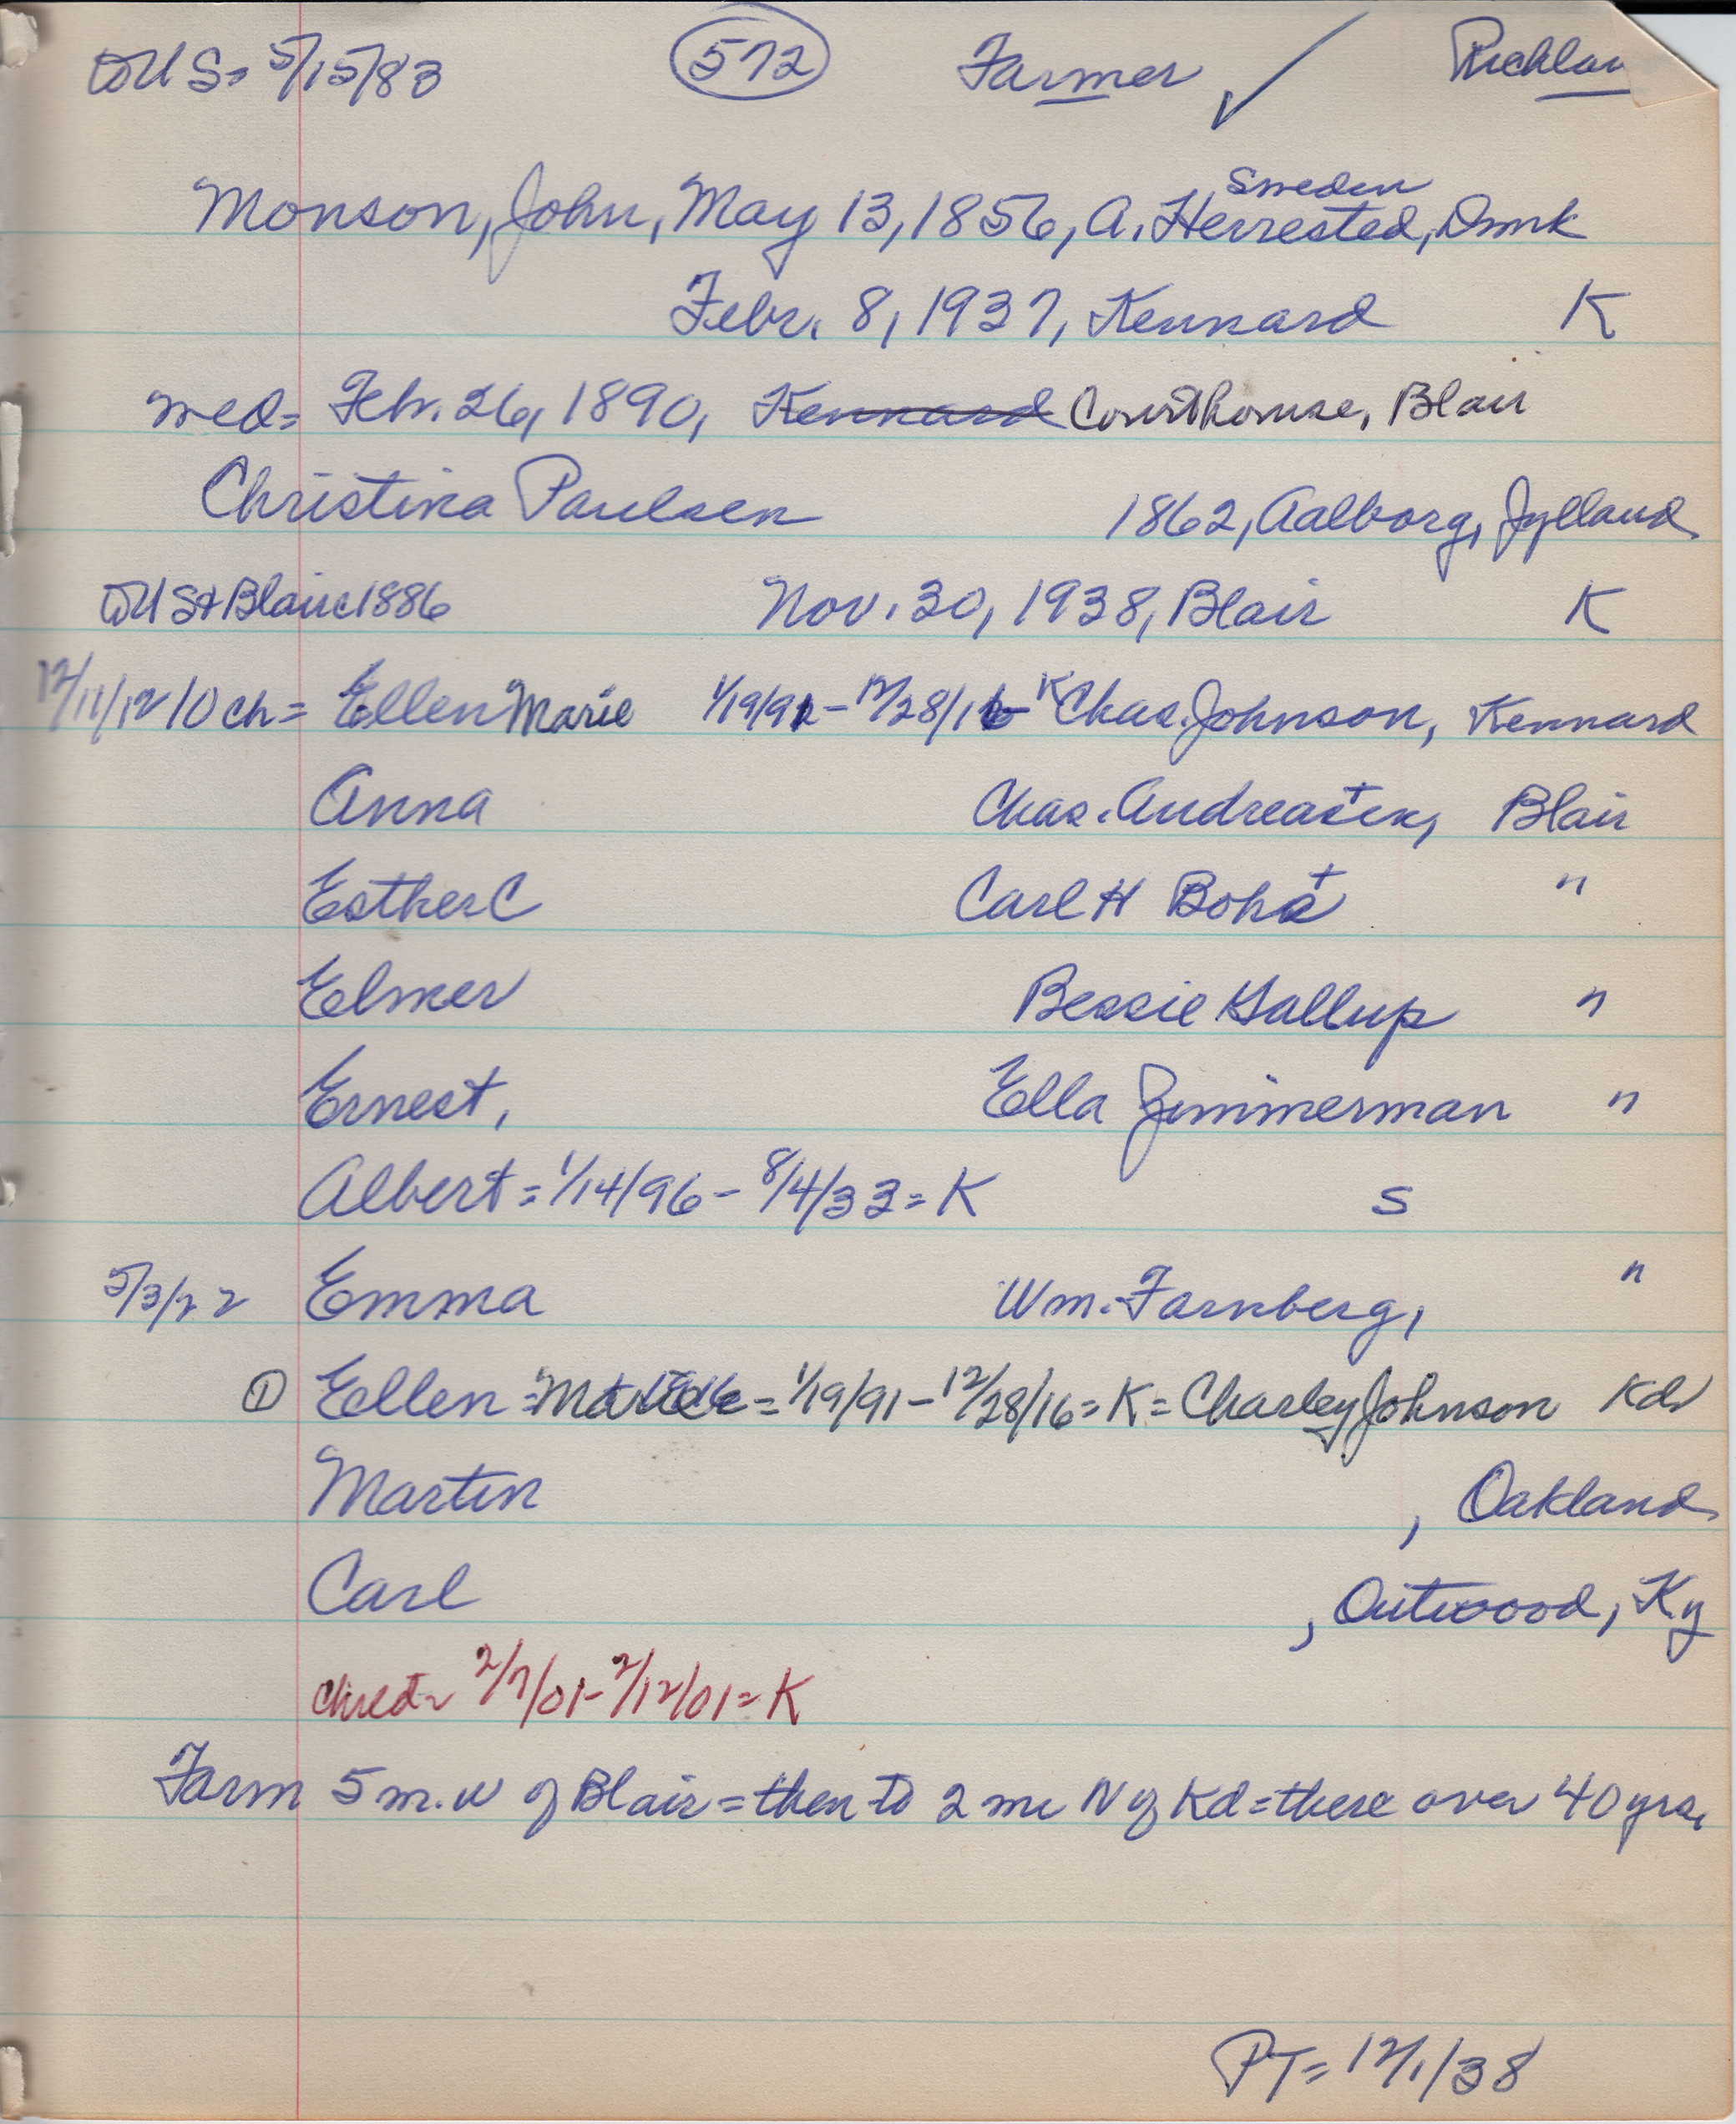 to US= 5/15/83 572 Farmer ✓ Richlan
Sweden
Monson, John, May 13, 1856, A. Herrested, Dnmk
Febr. 8, 1937, Kennard K
wed= Feb. 26, 1890, Kennard Courthouse, Blair
Christina Paulsen 1862, Aalborg, Jylland
to US & Blair 1886 Nov. 30, 1938, Blair K
12/11/12 10 ch= Ellen Marie 1/19/91 - 12/28/16 K Chas. Johnson, Kennard
Anna Chas. Andreasen, Blair
Esther C Carl H "
Elmer Bessie Gallup "
Ernest, Ella Zimmerman "
Albert = 1/14/96 - 8/4/33 = K S
5/3/22 Emma Wm. Farnberg, "
① Ellen = Marie = 1/19/91 - 12/28/16 = K = Charley Johnson Kd
Martin , Oakland
Carl , Outwood, Ky
2/7/01 - 2/12/01 = K
Farm 5 m. W of Blair = then to 2 mi N of Kd = there over 40 yrs.
PT= 12/1/38